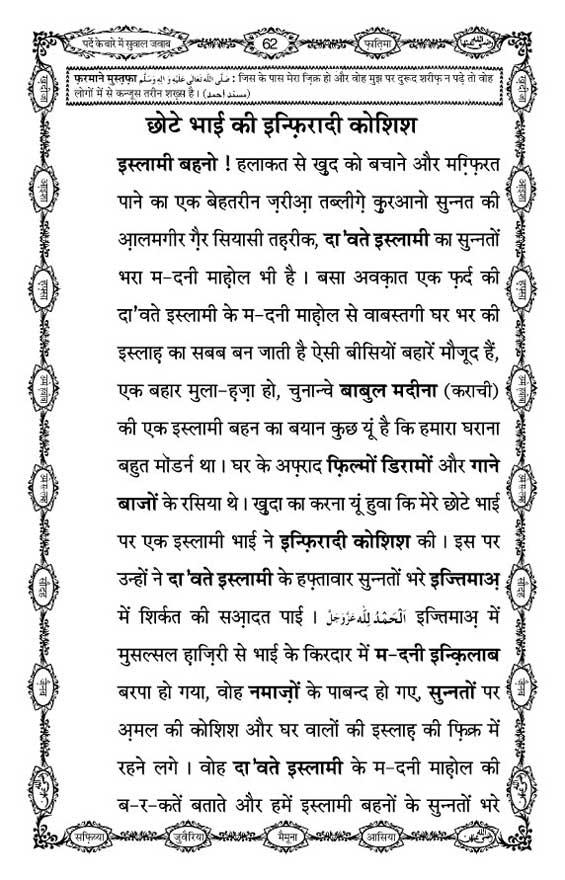 पर्दे के बारे में सुवाल जवाब
62
फ़ातिमा
फ़रमाने मुस्तफ़ा صَلَّى اللهُ تَعَالٰى عَلَيْهِ وَاٰلِهٖ وَسَلَّم : जिस के पास मेरा ज़िक्र हो और वोह मुझ पर दुरूद शरीफ़ न पढ़े तो वोह
लोगों में से कन्जूस तरीन शख़्स है। (مسند احمد)
छोटे भाई की इन्फ़िरादी कोशिश
इस्लामी बहनो ! हलाकत से ख़ुद को बचाने और मग़्फ़िरत
पाने का एक बेहतरीन ज़रीआ़ तब्लीगे़ कुरआनो सुन्नत की
आ़लमगीर गै़र सियासी तह़रीक, दा'वते इस्लामी का सुन्नतों
भरा म-दनी माह़ोल भी है । बसा अवक़ात एक फ़र्द की
दा'वते इस्लामी के म-दनी माह़ोल से वाबस्तगी घर भर की
इस्लाह़ का सबब बन जाती है ऐसी बीसियों बहारें मौजूद हैं,
एक बहार मुला-ह़ज़ा हो, चुनान्चे बाबुल मदीना (कराची)
की एक इस्लामी बहन का बयान कुछ यूं है कि हमारा घराना
बहुत मॉडर्न था । घर के अफ़्राद फ़िल्मों डिरामों और गाने
बाजों के रसिया थे । ख़ुदा का करना यूं हुवा कि मेरे छोटे भाई
पर एक इस्लामी भाई ने इन्फ़िरादी कोशिश की । इस पर
उन्हों ने दा'वते इस्लामी के हफ़्तावार सुन्नतों भरे इज्तिमाअ़
में शिर्कत की सआ़दत पाई । اَلْحَمْدُ لِلّٰه عَزَّوَجَلَّ इज्तिमाअ़ में
मुसल्सल ह़ाज़िरी से भाई के किरदार में म-दनी इन्क़िलाब
बरपा हो गया, वोह नमाज़ों के पाबन्द हो गए, सुन्नतों पर
अ़मल की कोशिश और घर वालों की इस्लाह़ की फ़िक्र में
रहने लगे । वोह दा'वते इस्लामी के म-दनी माह़ोल की
ब-र-कतें बताते और हमें इस्लामी बहनों के सुन्नतों भरे
सफ़िय्या
जुवैरिया
मैमूना
आसिया